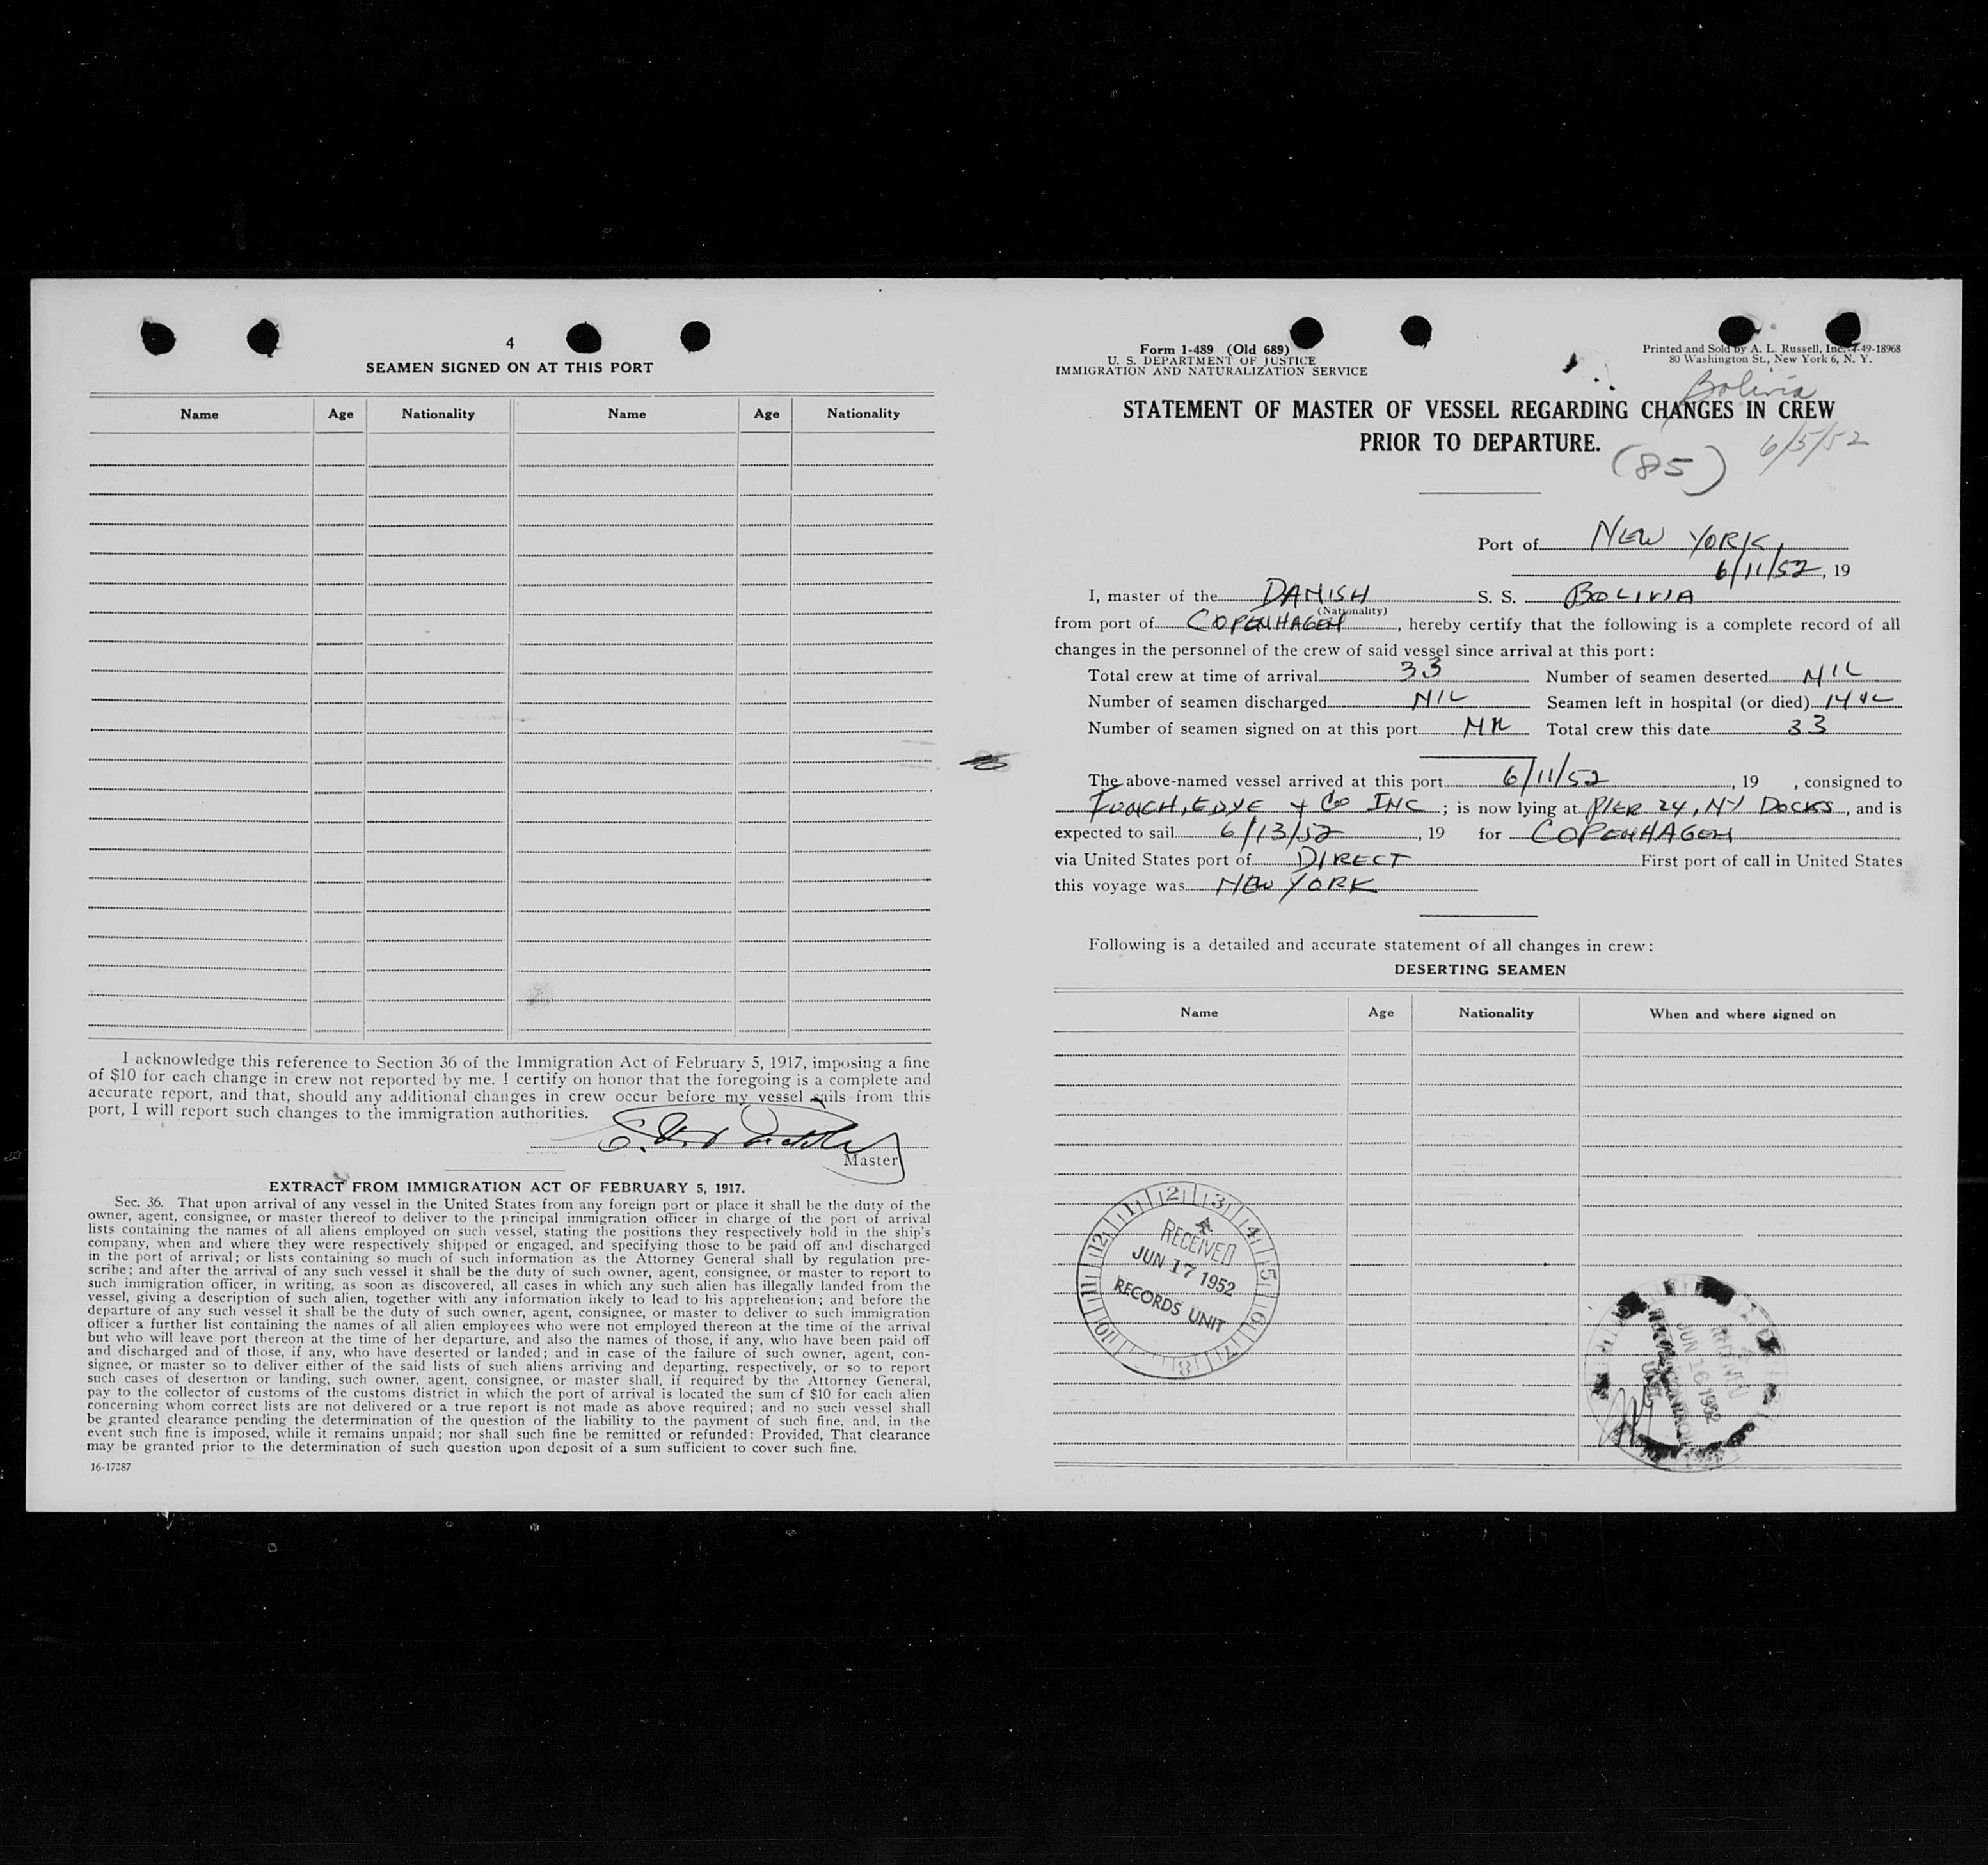 4
SEAMEN SIGNED ON AT THIS PORT
Name Age Nationality Name Age Nationality
I acknowledge this reference to Section 36 of the Immigration Act of February 5, 1917, imposing a fine
of $10 for each change in crew not reported by me. I certify on honor that the foregoing is a complete and
accurate report, and that, should any additional changes in crew occur before my vessel sails from this
port, I will report such changes to the immigration authorities.
Master
EXTRACT FROM IMMIGRATION ACT OF FEBRUARY 5, 1917.
Sec. 36. That upon arrival of any vessel in the United States from any foreign port or place it shall be the duty of the
owner, agent, consignee, or master thereof to deliver to the principal immigration officer in charge of the port of arrival
lists containing the names of all aliens employed on such vessel, stating the positions they respectively hold in the ship's
company, when and where they were respectively shipped or engaged, and specifying those to be paid off and discharged
in the port of arrival; or lists containing so much of such information as the Attorney General shall by regulation pre-
scribe; and after the arrival of any such vessel it shall be the duty of such owner, agent, consignee, or master to report to
such immigration officer, in writing, as soon as discovered, all cases in which any such alien has illegally landed from the
vessel, giving a description of such alien, together with any information likely to lead to his apprehension; and before the
departure of any such vessel it shall be the duty of such owner, agent, consignee, or master to deliver to such immigration
officer a further list containing the names of all alien employees who were not employed thereon at the time of the arrival
but who will leave port thereon at the time of her departure, and also the names of those, if any, who have been paid off
and discharged and of those, if any, who have deserted or landed; and in case of the failure of such owner, agent, con-
signee, or master so to deliver either of the said lists of such aliens arriving and departing, respectively, or so to report
such cases of desertion or landing, such owner, agent, consignee, or master shall, if required by the Attorney General,
pay to the collector of customs of the customs district in which the port of arrival is located the sum of $10 for each alien
concerning whom correct lists are not delivered or a true report is not made as above required; and no such vessel shall
be granted clearance pending the determination of the question of the liability to the payment of such fine, and, in the
event such fine is imposed, while it remains unpaid; nor shall such fine be remitted or refunded: Provided, That clearance
may be granted prior to the determination of such question upon deposit of a sum sufficient to cover such fine.
16-17387
Form 1-489 (Old 689)
U. S. DEPARTMENT OF JUSTICE
IMMIGRATION AND NATURALIZATION SERVICE
Printed and Sold by A. L. Russell, Inc. 49-18968
80 Washington St., New York 6, N. Y.
Bolivia
STATEMENT OF MASTER OF VESSEL REGARDING CHANGES IN CREW
PRIOR TO DEPARTURE.
(85) 6/5/52
Port of NEW YORK,
6/11/52, 19
I, master of the DANISH S. S. BOLIVIA
(Nationality)
from port of COPENHAGEN, hereby certify that the following is a complete record of all
changes in the personnel of the crew of said vessel since arrival at this port:
Total crew at time of arrival 33 Number of seamen deserted NIL
Number of seamen discharged NIL Seamen left in hospital (or died) NIL
Number of seamen signed on at this port NIL Total crew this date 33
The above-named vessel arrived at this port 6/11/52, 19 , consigned to
FUNCH, EDYE & CO INC; is now lying at PIER 24, NY DOCKS, and is
expected to sail 6/13/52, 19 for COPENHAGEN
via United States port of DIRECT First port of call in United States
this voyage was NEW YORK
Following is a detailed and accurate statement of all changes in crew:
DESERTING SEAMEN
Name Age Nationality When and where signed on
12 1 2 3 4 5 6 7 8 10 11
RECEIVED
JUN 17 1952
RECORDS UNIT
RECEIVED
JUN 16 1952
UNIT